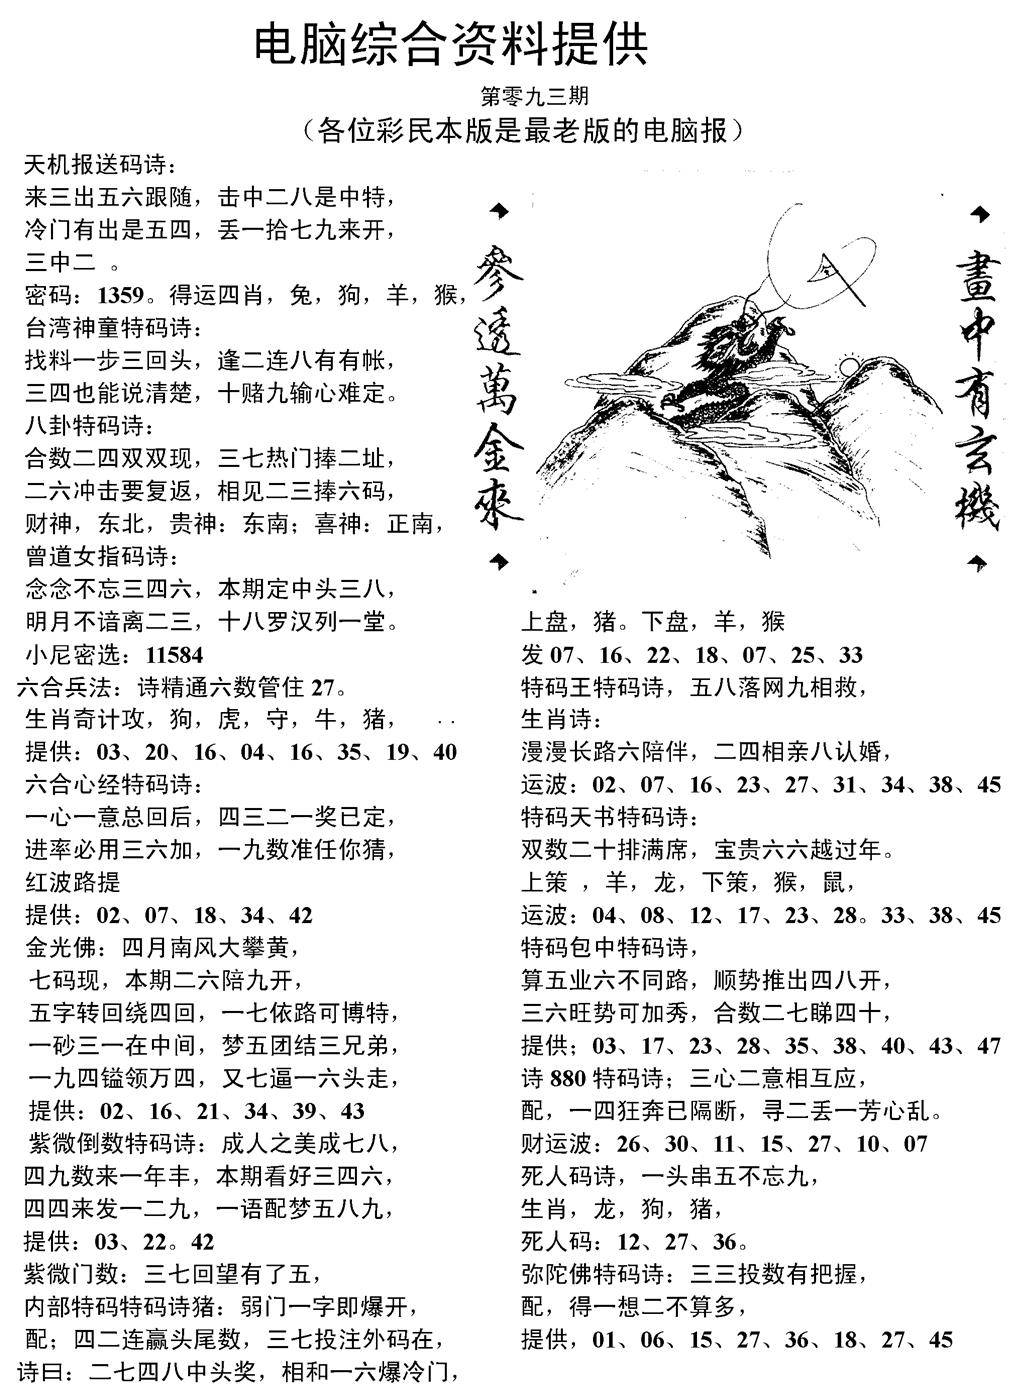 电脑综合资料提供
第零九三期
（各位彩民本版是最老版的电脑报）
天机报送码诗：
来三出五六跟随，击中二八是中特，
冷门有出是五四，丢一拾七九来开，
三中二 。
密码：1359。得运四肖，兔，狗，羊，猴，
台湾神童特码诗：
找料一步三回头，逢二连八有有帐，
三四也能说清楚，十赌九输心难定。
八卦特码诗：
合数二四双双现，三七热门捧二址，
二六冲击要复返，相见二三捧六码，
财神，东北，贵神：东南；喜神：正南，
曾道女指码诗：
念念不忘三四六，本期定中头三八，
明月不谙离二三，十八罗汉列一堂。
小尼密选：11584
六合兵法：诗精通六数管住 27。
生肖奇计攻，狗，虎，守，牛，猪，
提供：03、20、16、04、16、35、19、40
六合心经特码诗：
一心一意总回后，四三二一奖已定，
进率必用三六加，一九数准任你猜，
红波路提
提供：02、07、18、34、42
金光佛：四月南风大攀黄，
七码现，本期二六陪九开，
五字转回绕四回，一七依路可博特，
一砂三一在中间，梦五团结三兄弟，
一九四镒领万四，又七逼一六头走，
提供：02、16、21、34、39、43
紫微倒数特码诗：成人之美成七八，
四九数来一年丰，本期看好三四六，
四四来发一二九，一语配梦五八九，
提供：03、22。42
紫微门数：三七回望有了五，
内部特码特码诗猪：弱门一字即爆开，
配；四二连赢头尾数，三七投注外码在，
诗曰：二七四八中头奖，相和一六爆冷门，
參透萬金來
畫中有玄機
上盘，猪。下盘，羊，猴
发 07、16、22、18、07、25、33
特码王特码诗，五八落网九相救，
生肖诗：
漫漫长路六陪伴，二四相亲八认婚，
运波：02、07、16、23、27、31、34、38、45
特码天书特码诗：
双数二十排满席，宝贵六六越过年。
上策 ，羊，龙，下策，猴，鼠，
运波：04、08、12、17、23、28。33、38、45
特码包中特码诗，
算五业六不同路，顺势推出四八开，
三六旺势可加秀，合数二七睇四十，
提供；03、17、23、28、35、38、40、43、47
诗 880 特码诗；三心二意相互应，
配，一四狂奔已隔断，寻二丢一芳心乱。
财运波：26、30、11、15、27、10、07
死人码诗，一头串五不忘九，
生肖，龙，狗，猪，
死人码：12、27、36。
弥陀佛特码诗：三三投数有把握，
配，得一想二不算多，
提供，01、06、15、27、36、18、27、45